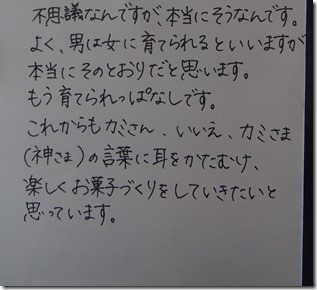 不思議なんですが、本当にそうなんです。
よく、男は女に育てられるといいますが
本当にそのとおりだと思います。
もう育てられっぱなしです。
これからもカミさん、いいえ、カミさま
(神さま)の言葉に耳をかたむけ、
楽しくお菓子づくりをしていきたいと
思っています。